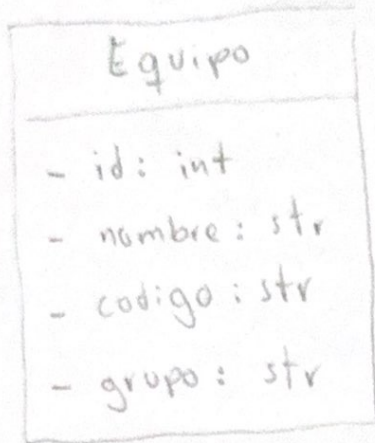 Equipo
- id: int
- nombre: str
- codigo: str
- grupo: str